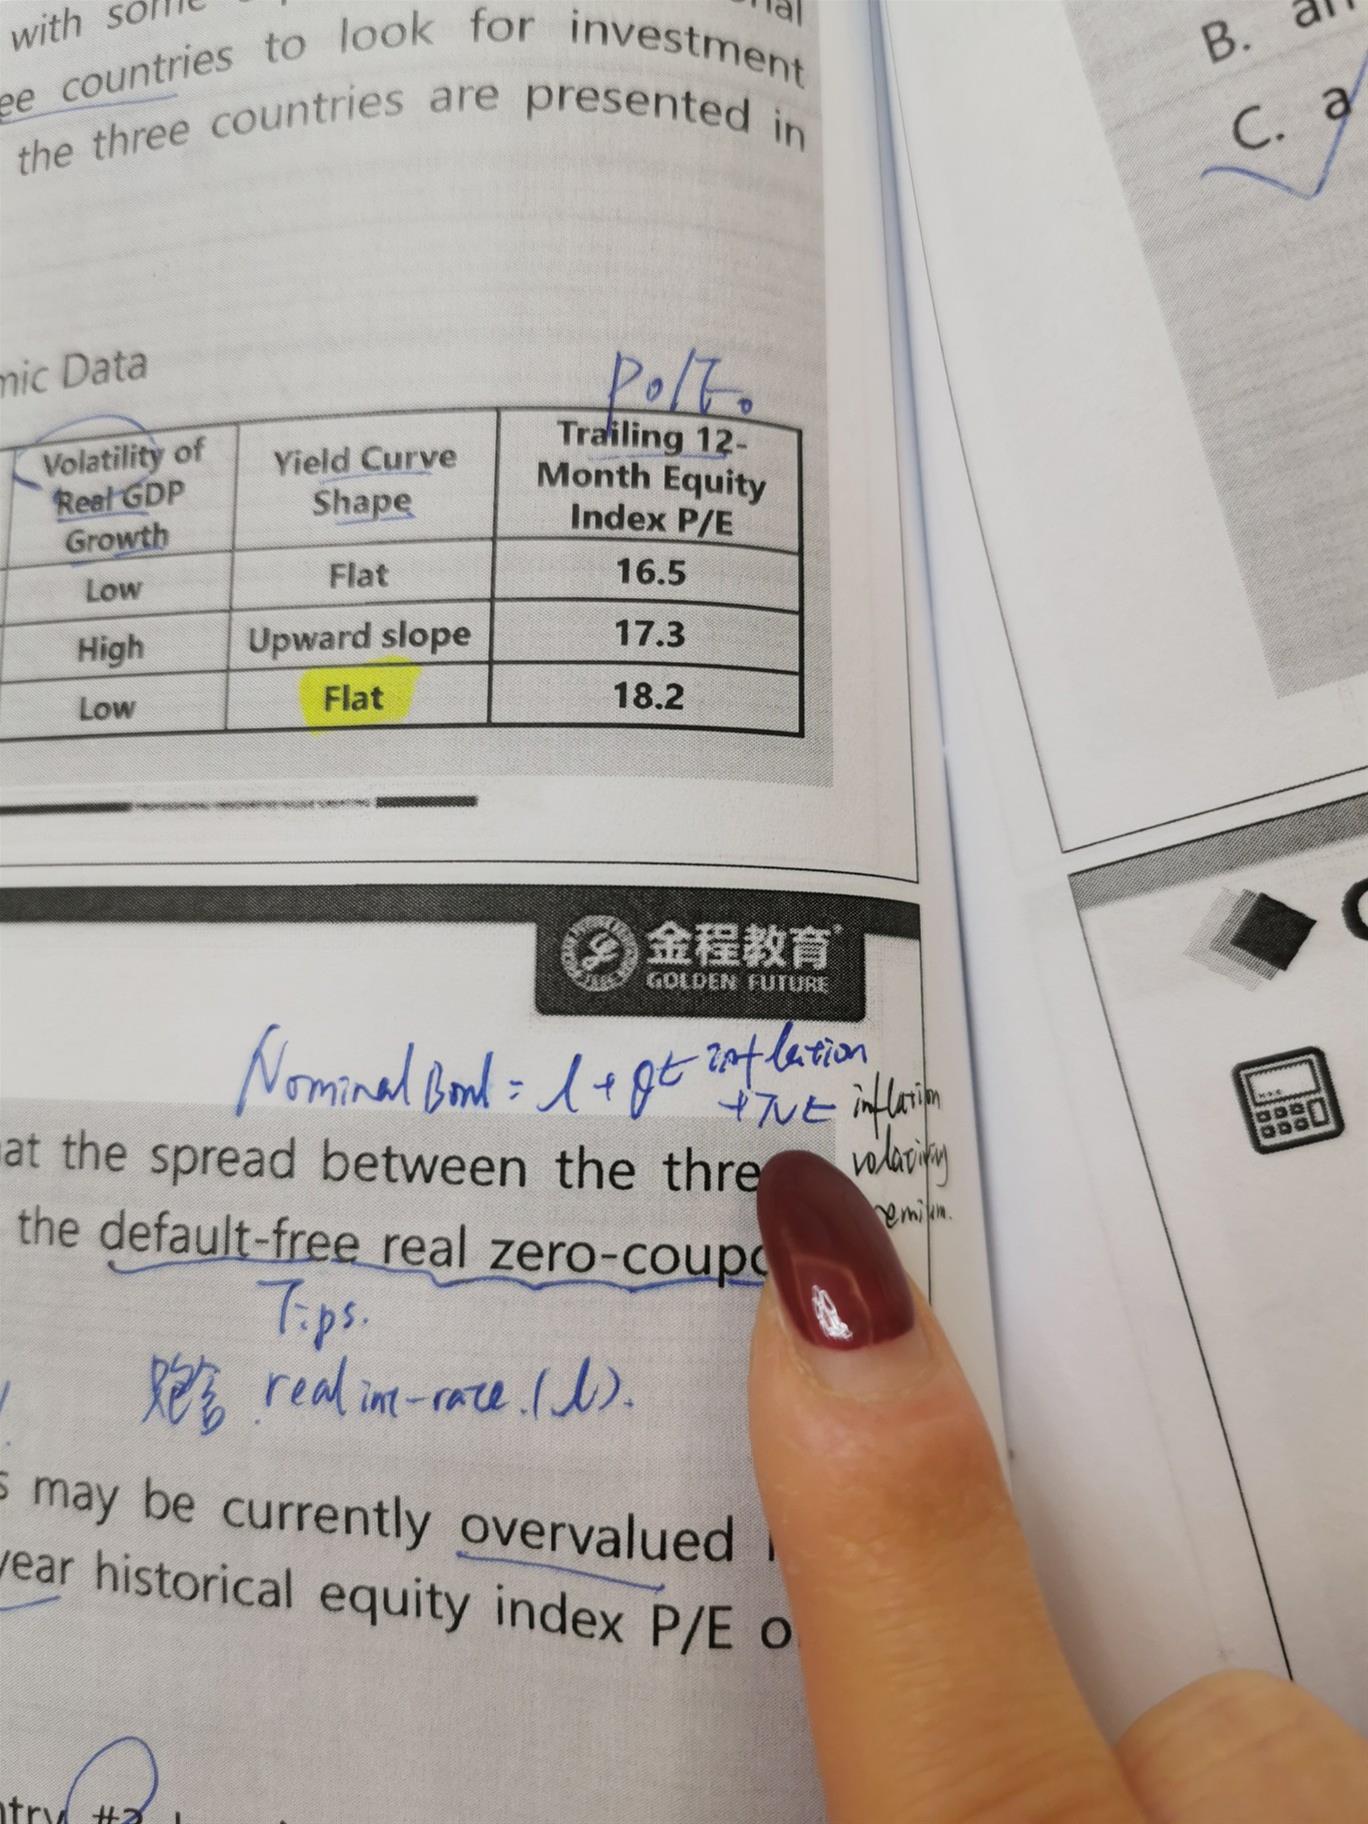 with some
ee countries to look for investment
the three countries are presented in
B.
C. a
mic Data
P0/E0
Volatility of Real GDP Growth
Yield Curve Shape
Trailing 12-Month Equity Index P/E
Low Flat 16.5
High Upward slope 17.3
Low Flat 18.2
金程教育
GOLDEN FUTURE
Nominal Bond = l + θt inflation
+ πt inflation
volatility
emium.
at the spread between the thre
the default-free real zero-coupo
Tips.
real int-rate (l).
s may be currently overvalued
year historical equity index P/E o
ntry #2